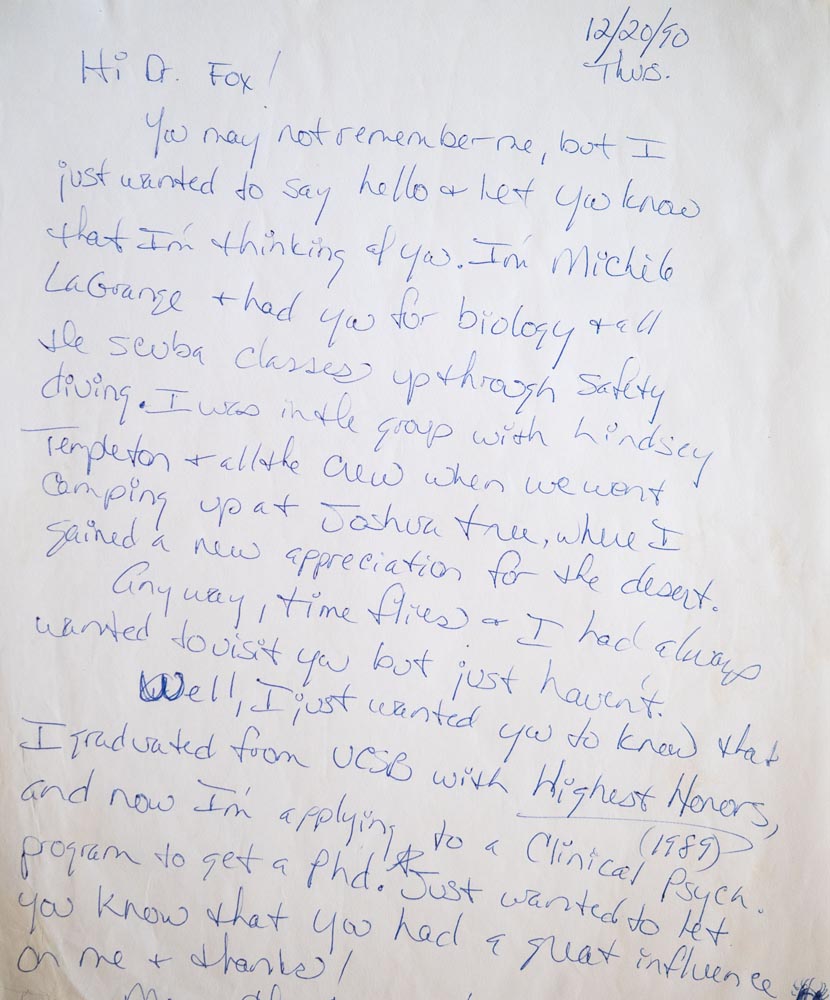 12/20/90
Thurs.
Hi Dr. Fox!
You may not remember me, but I
just wanted to say hello & let you know
that I'm thinking of you. I'm Michele
LaGrange & had you for biology & all
the scuba classes up through safety
diving. I was in the group with Lindsey
Templeton & all the crew when we went
camping up at Joshua tree, where I
gained a new appreciation for the desert.
Anyway, time flies & I had always
wanted to visit you but just haven't.
Well, I just wanted you to know that
I graduated from UCSB with Highest Honors,
(1989)
and now I'm applying to a Clinical Psych.
program to get a Phd. Just wanted to let
you know that you had a great influence
on me & thanks!